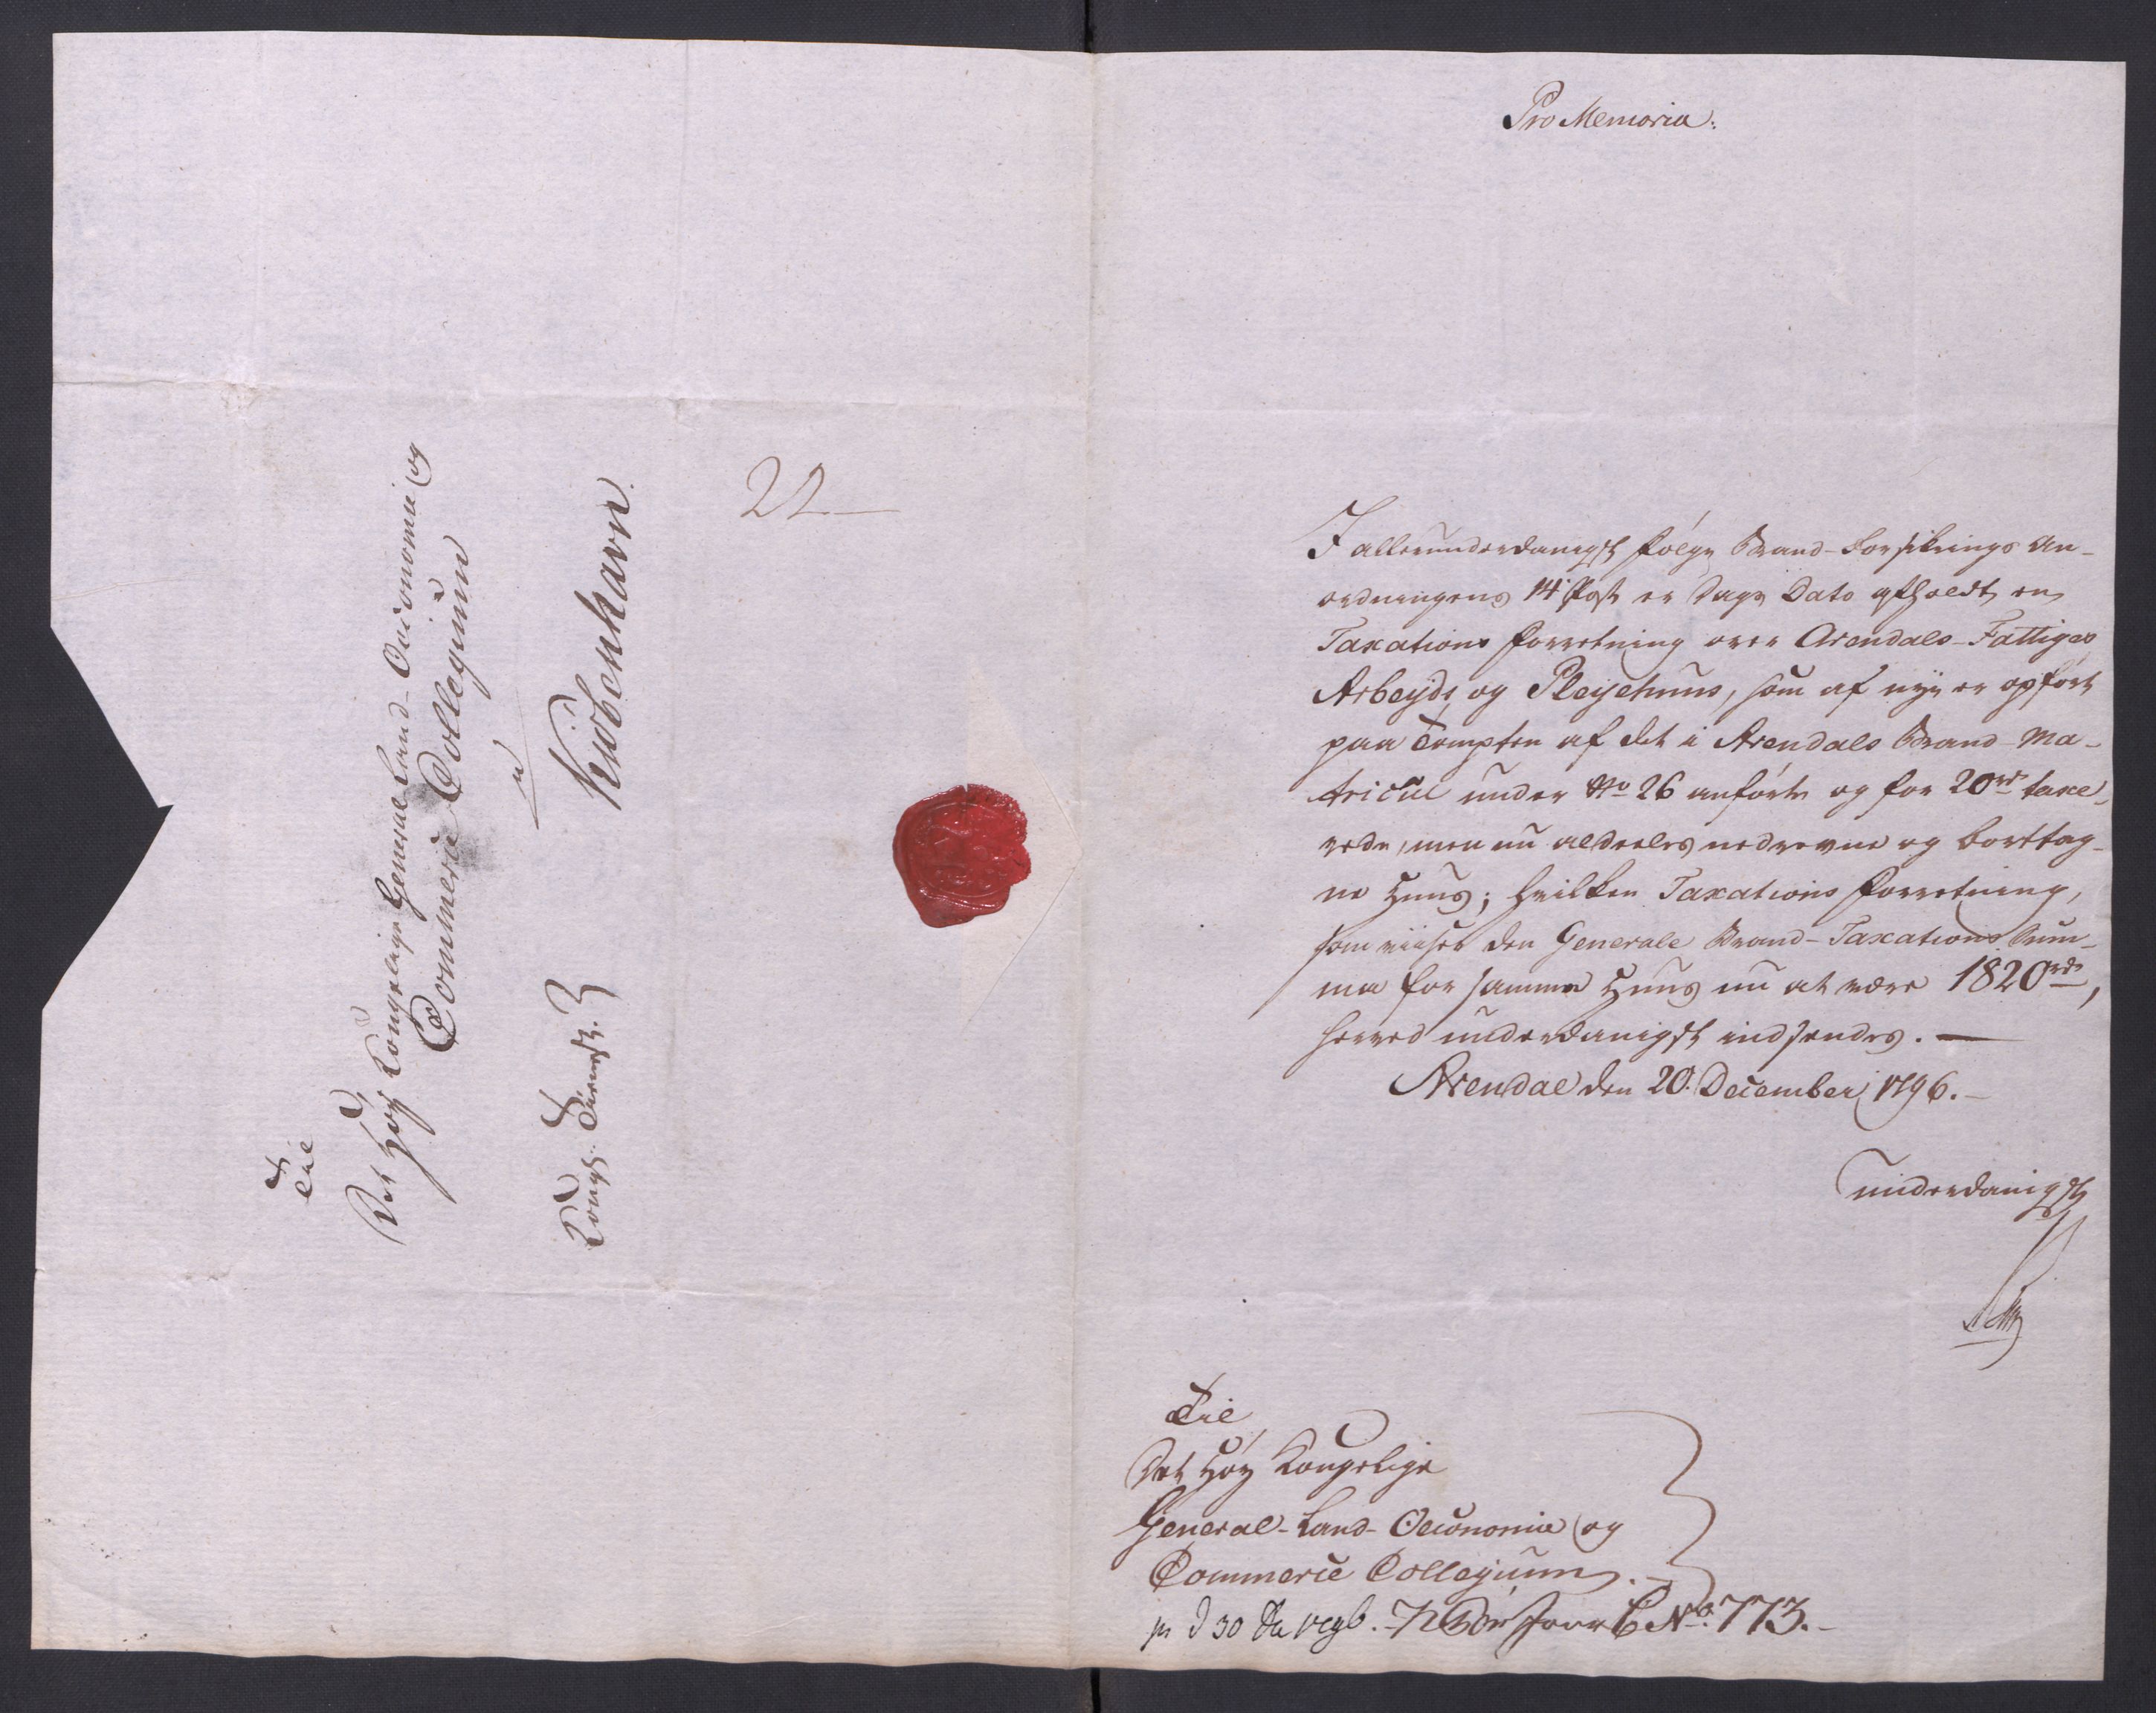 Til
Det Høy Kongelige General Land-Oeconomie og
Commerce Collegium
i
Kiøbenhavn.
Kongl. Tieneste.
22
Pro Memoria.
I allerunderdanigst følge Brand-Forsikrings An-
ordningens 14 Post er Dags Dato afholdt en
Taxations Forretning over Arendals Fattiges
Arbeyds og Pleyehuus, som af nye er opført
paa Tompten af det i Arendals Brand-Ma-
tricul under No 26 anførte og for 20rd taxe-
rede, men nu aldeeles nedrevne og borttag-
ne Huus; hvilken Taxations Forretning,
som viiser den Generale Brand-Taxations Sum-
ma for samme Huus nu at være 1820rd,
herved underdanigst indsendes. —
Arendal den 20. December 1796.
underdanigst
Til
Det Høy Kongelige
General-Land-Oeconomie og
Commerce Collegium.
30 1796. No. 773.